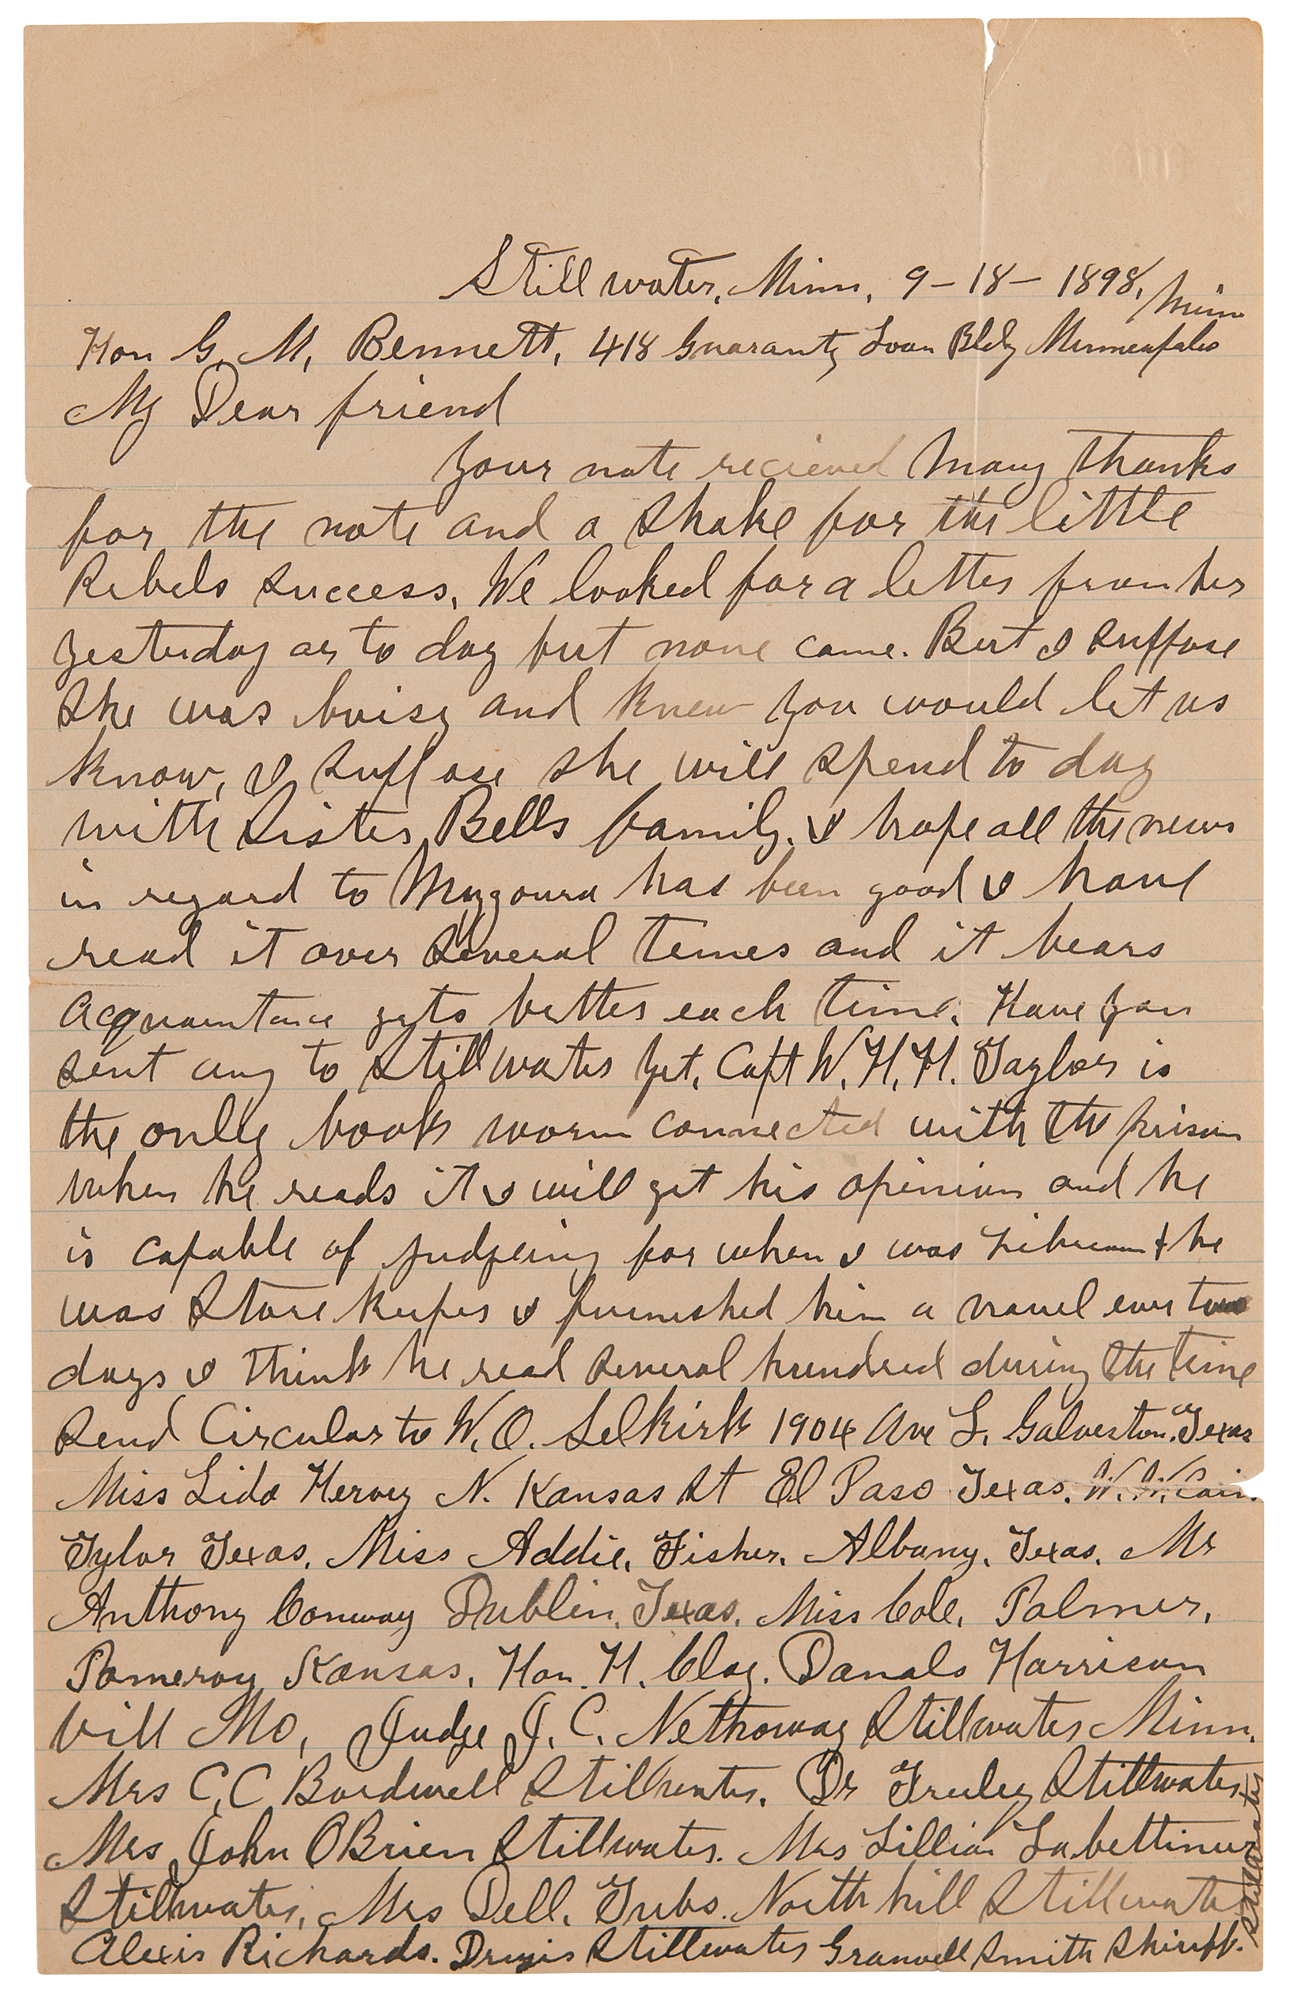 Stillwater, Minn, 9-18-1898,
Hon G. M, Bennett, 418 Guaranty Loan Bldg Minneapolis Minn
My Dear friend
Your note recieved Many thanks
for the note and a shake for the little
Rebels success, We looked for a letter from her
yesterday or to day but none came. But I suppose
she was buisy and knew you would let us
know, I suppose she will spend to day
with Sister Bells family. I hope all the news
in regard to has been good I have
read it over several temes and it bears
acquaintance gets better each time. Have you
sent any to Stillwater yet, Capt W. H, H. Taylor is
the only book worm connected with the prison
when he reads it I will get his opinion and he
is capable of judgeing for when I was Librarian & he
was Store keeper I furnished him a novel ever two
days I think he read several hundred during the time
send Circular to W. O. Selkirk 1904 Ave L. Galveston Texas
Miss Lida Hervey N. Kansas St El Paso Texas. W. W. Cain.
Tylor Texas. Miss Addie, Fisher. Albany, Texas. Mr
Anthony Conway Dublin, Texas. Miss Cole, Palmer,
Pomeroy Kansas. Hon. H. Clay. Danals Harrison
vill Mo, Judge J. C. Nethoway Stillwater Minn.
Mrs C, C Bordwell Stillwater. Dr Stillwater
Mrs John OBrien Stillwater. Mrs Lillian
Stillwater, Mrs Dell. North hill Stillwater
Alexis Richards. Stillwater Granvell Smith Shiriff. Stillwater